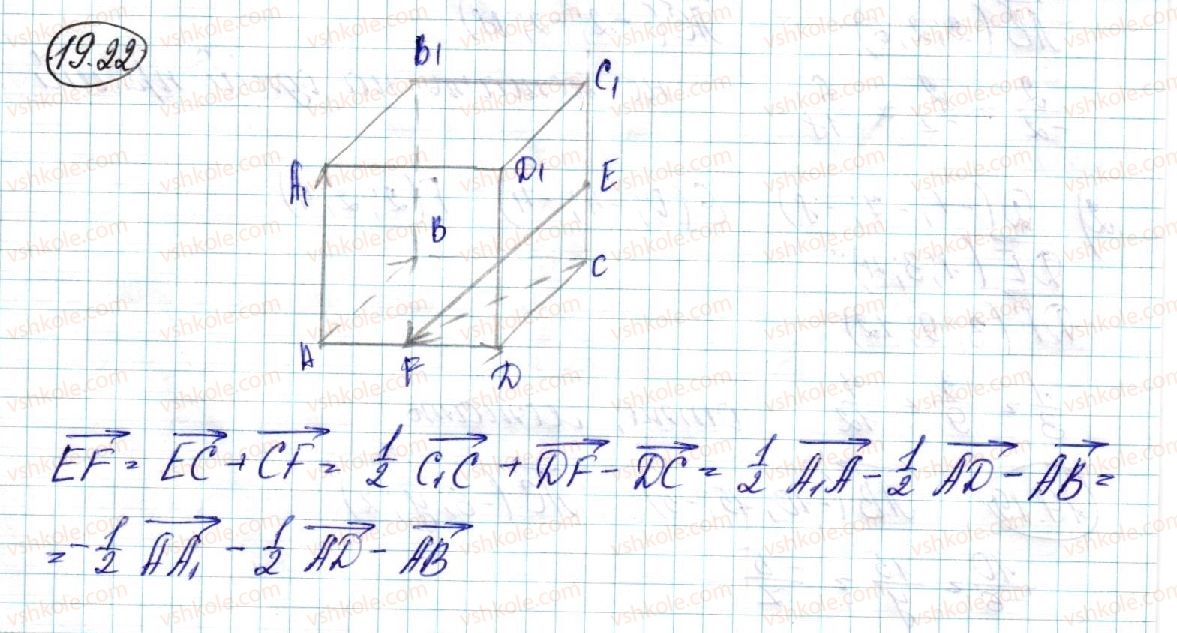 19.22
B₁
C₁
A₁
D₁
E
B
C
A
F
D
EF⃗ = EC⃗ + CF⃗ = 1/2 C₁C⃗ + DF⃗ - DC⃗ = 1/2 A₁A⃗ - 1/2 AD⃗ - AB⃗ =
= -1/2 AA₁⃗ - 1/2 AD⃗ - AB⃗
vshkole.com